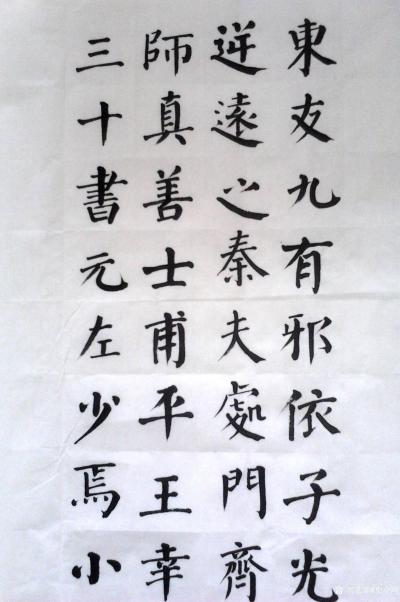 東友九有邪依子光
逆遠之秦夫處門齊
師真善士甫平王幸
三十書元左少焉小